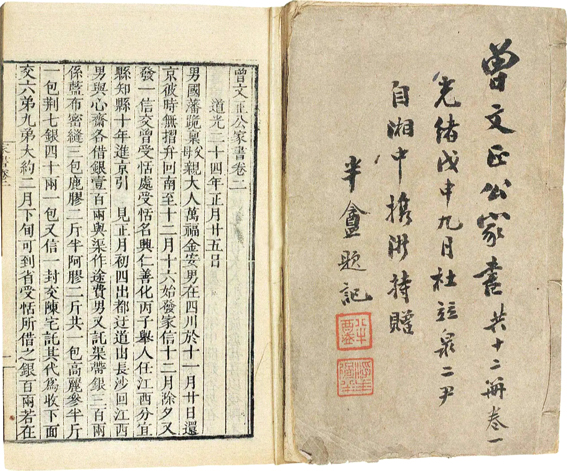 曾文正公家書 共十二冊 卷一
光緒戊申九月杜竝泉二尹
自湘中携浙持贈
半盦題記
曾文正公家書卷二
道光二十四年正月廿五日
男國藩跪稟父母親大人萬福金安男在四川於十一月廿日還
京彼時無摺弁回南至十二月十六始發家信十二月除夕又
發一信交曾受恬處受恬名興仁善化丙子舉人任江西分宜
縣知縣十年進京引 見正月初四出都迂道由長沙回江西
男與心齋各借銀壹百兩與渠作途費男又託渠帶銀三百兩
係藍布密縫三包鹿膠二斤半阿膠二斤共一包高麗參半斤
一包荊七銀四十兩一包又信一封交陳宅託其代為收下面
交六弟九弟大約二月下旬可到省受恬所借之銀百兩若在